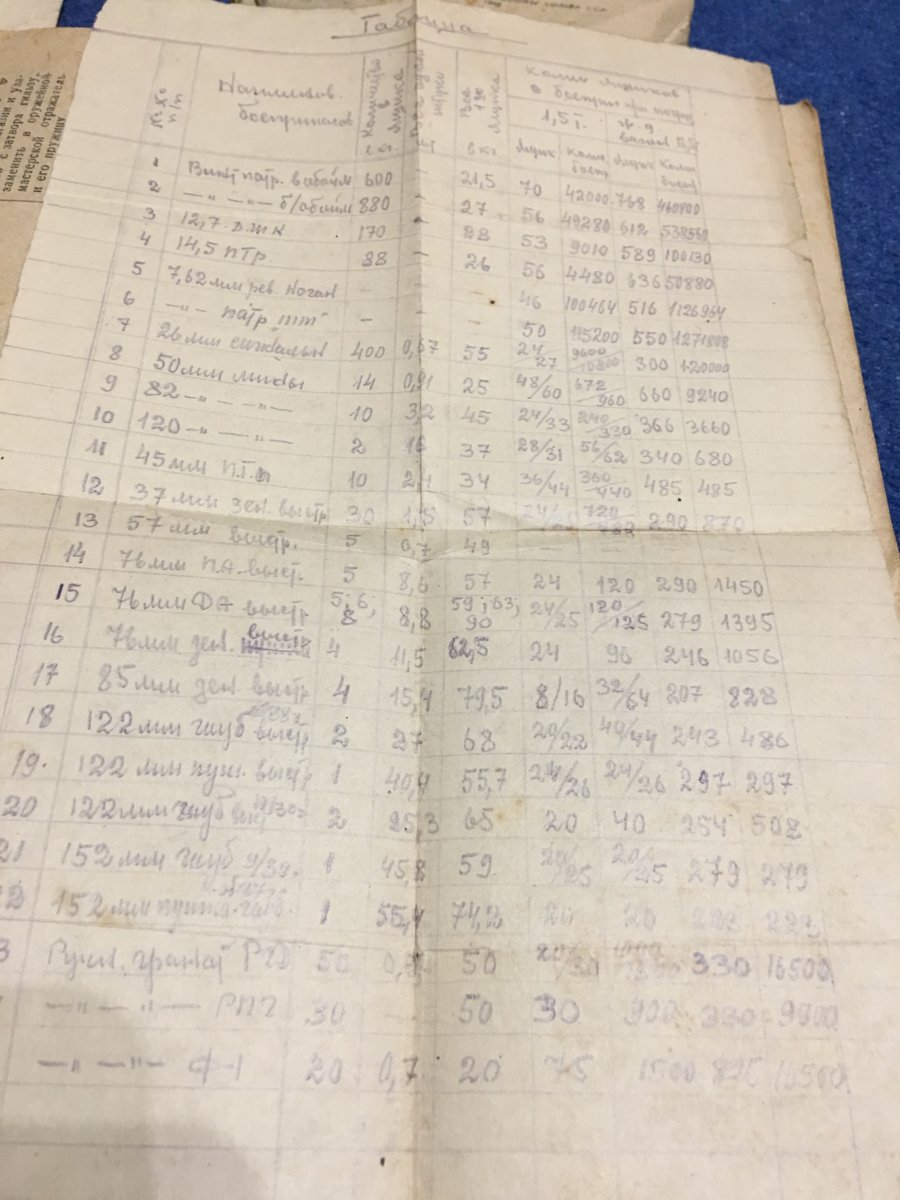 Таблица
№№ п/п
Наименов. боеприпасов
Количество в ящике
Вес 1го ящика
в кг
Колич ящиков
с боеприп при погруз
1,5 т.
ж. д.
ящик
колич. боепр
ящик
1 Винт патр. в обойм 600 - 21,5 70 42000 768 460800
2 -"- -"- б/обойм 880 - 27 56 49280 612 538560
3 12,7 ДШК 170 - 28 53 9010 589 100130
4 14,5 ПТР 88 - 26 56 4480 636 50880
5 7,62 мм рев. Наган - - - 46 100464 516 1126964
6 -"- патр "ТТ" - - - 50 115200 550 1271808
7 26 мм сигнальн 400 0,67 55 24/27 9600/10800 300 120000
8 50 мм мины 14 0,91 25 48/60 672/960 660 9240
9 82 -"- -"- 10 3,2 45 24/33 240/330 366 3660
10 120 -"- -"- 2 16 37 28/31 56/62 340 680
11 45 мм П.Т.А 10 34 36/44 360/440 485 485
12 37 мм зен. выстр 30 1,5 57 290 870
13 57 мм выстр. 5 0,7 49
14 76 мм П.А. выст. 5 8,6 57 24 120 290 1450
15 76 мм ДА выстр 5; 6; 8 8,8 59; 63; 90 24/25 120/125 279 1395
16 76 мм зен. выстр 4 11,5 62,5 24 96 246 1056
17 85 мм зен выстр 4 15,4 79,5 8/16 32/64 207 828
18 122 мм гауб выстр 2 27 68 20/22 40/44 243 486
19. 122 мм пуш. выстр 1 40,4 55,7 24/26 24/26 297 297
20 122 мм гауб 2 25,3 65 20 40 254 508
21 152 мм гауб 1 45,8 59 279 279
152 мм пушка гауб. 1 55,4 74,2 20 20
Ручн. гранат РГД 50 50 330 16500
-"- -"- РПГ 30 50 30 900 330 9900
-"- -"- Ф-1 20 0,7 20 75 1500 825 16500
с затвора гильзу,
заменить в оружейной
мастерской отражатель
и его пружину